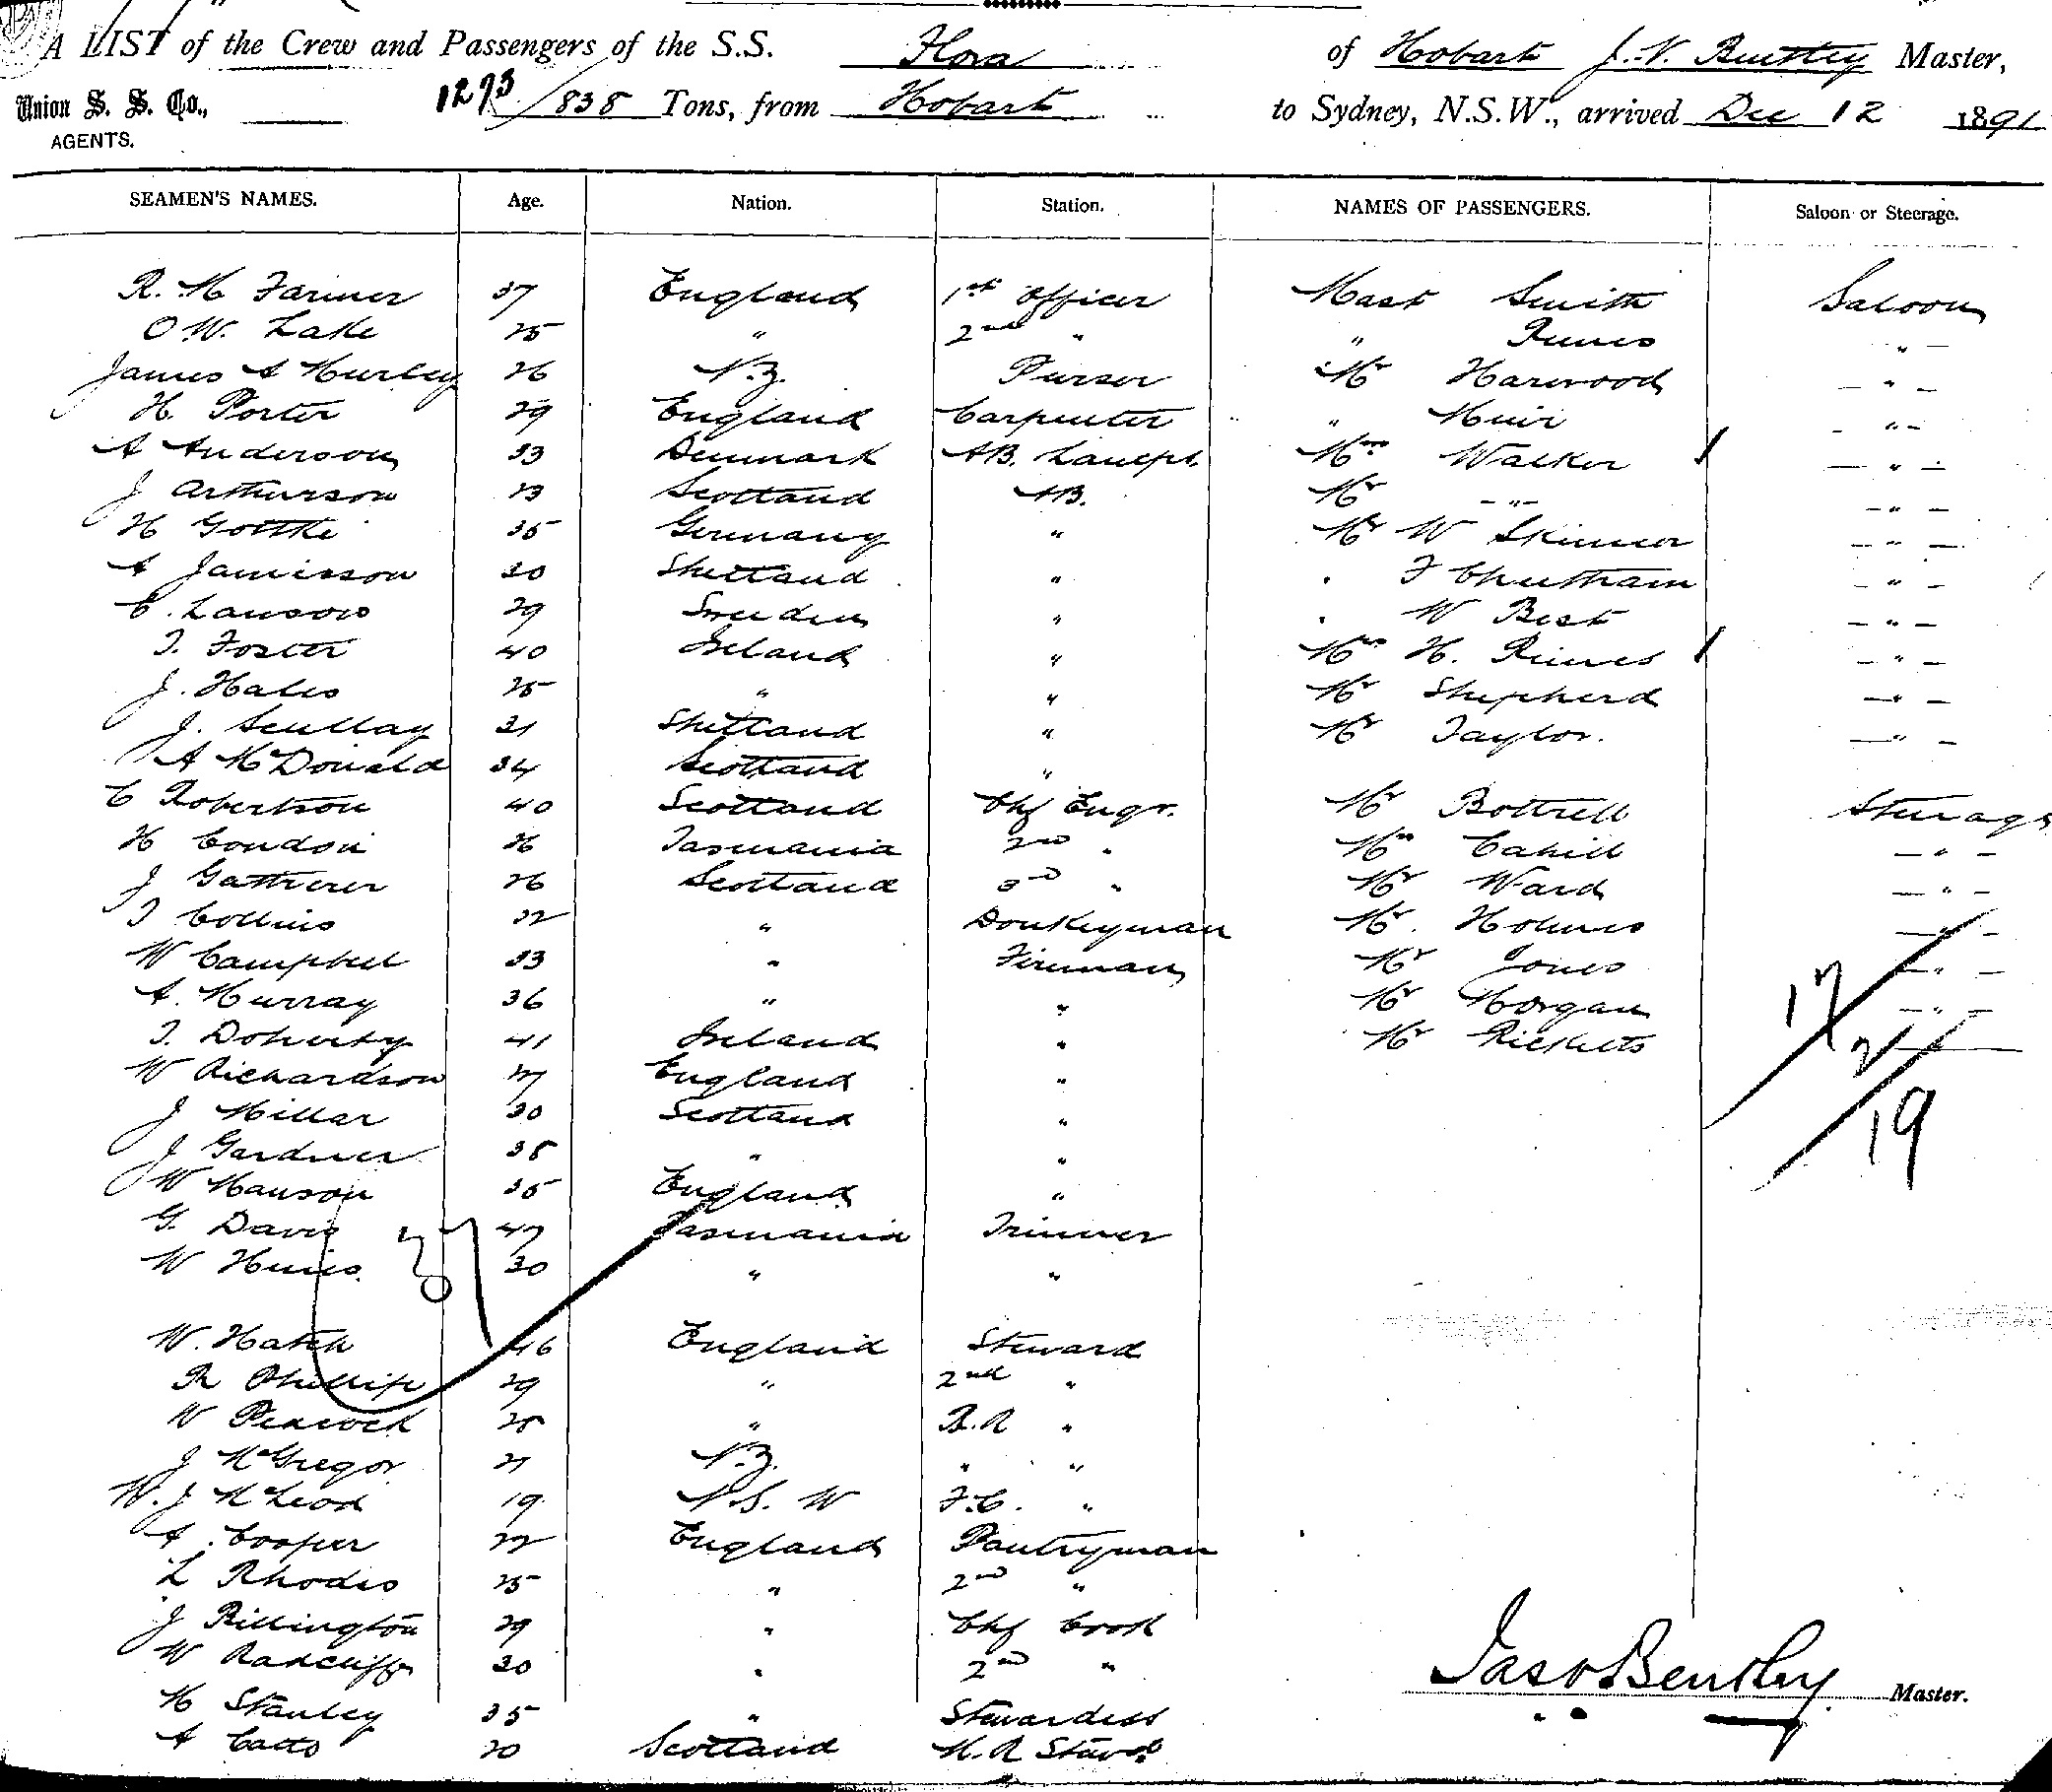 A LIST of the Crew and Passengers of the S.S. Flora of Hobart J. V. Bentley Master,
Union S. S. Co., 1273/838 Tons, from Hobart to Sydney, N.S.W., arrived Dec 12 1891
AGENTS.
SEAMEN'S NAMES. Age. Nation. Station. NAMES OF PASSENGERS. Saloon or Steerage.
R. M Farmer 37 England 1st Officer Mast Smith Saloon
O W. Lake 25 " 2nd " " "
James A Hurley 26 N.Z. Purser Mr Harwood - " -
H. Porter 29 England Carpenter " Muir - " -
A Anderson 33 Denmark AB. Lampr. Mrs Walker - " -
J Arthurson 23 Scotland AB. Mr - " - - " -
H Gottke 35 Germany " Mr W Skinner - " -
A Jamieson 30 Shetland " " F Cheetham - " -
C. Lawson 29 Sweden " " W Best - " -
T. Foster 40 Ireland " Mrs H. - " -
J. Hales 25 " " Mr Shepherd - " -
J. Scullay 31 Shetland " Mr Taylor. - " -
A McDonald 34 Scotland "
C Robertson 40 Scotland Chf Engr. Mr Bottrell Steerage
H Condon 26 Tasmania 2nd " Mrs Cahill - " -
J Gatherer 26 Scotland 3rd " Mr Ward - " -
T Collins 32 " Donkeyman Mr. Holmes - " -
W Campbell 33 " Fireman Mr Jones - " -
A. Murray 36 " " Mr Morgan - " -
T. Doherty 41 Ireland " Mr Ricketts
W Richardson 27 England " 17
J Millar 30 Scotland " 2
J Gardner 38 " " 19
W Manson 35 England "
G. Davis 47 Tasmania Trimmer
37
W 30 " "
W. Hatch 46 England Steward
R Phillips 29 " 2nd "
W Peacock 25 " B.R "
J McGregor 21 N.Z. " "
W. J McLeod 19 N.S. W F.C. "
A. Cooper 22 England Pantryman
L Rhodes 25 " 2nd "
J Billington 29 " Chf Cook
W Radcliffe 30 " 2nd "
H Stanley 35 " Stewardess
A Catto 20 Scotland M.R Stewd.
Jas V Bentley Master.